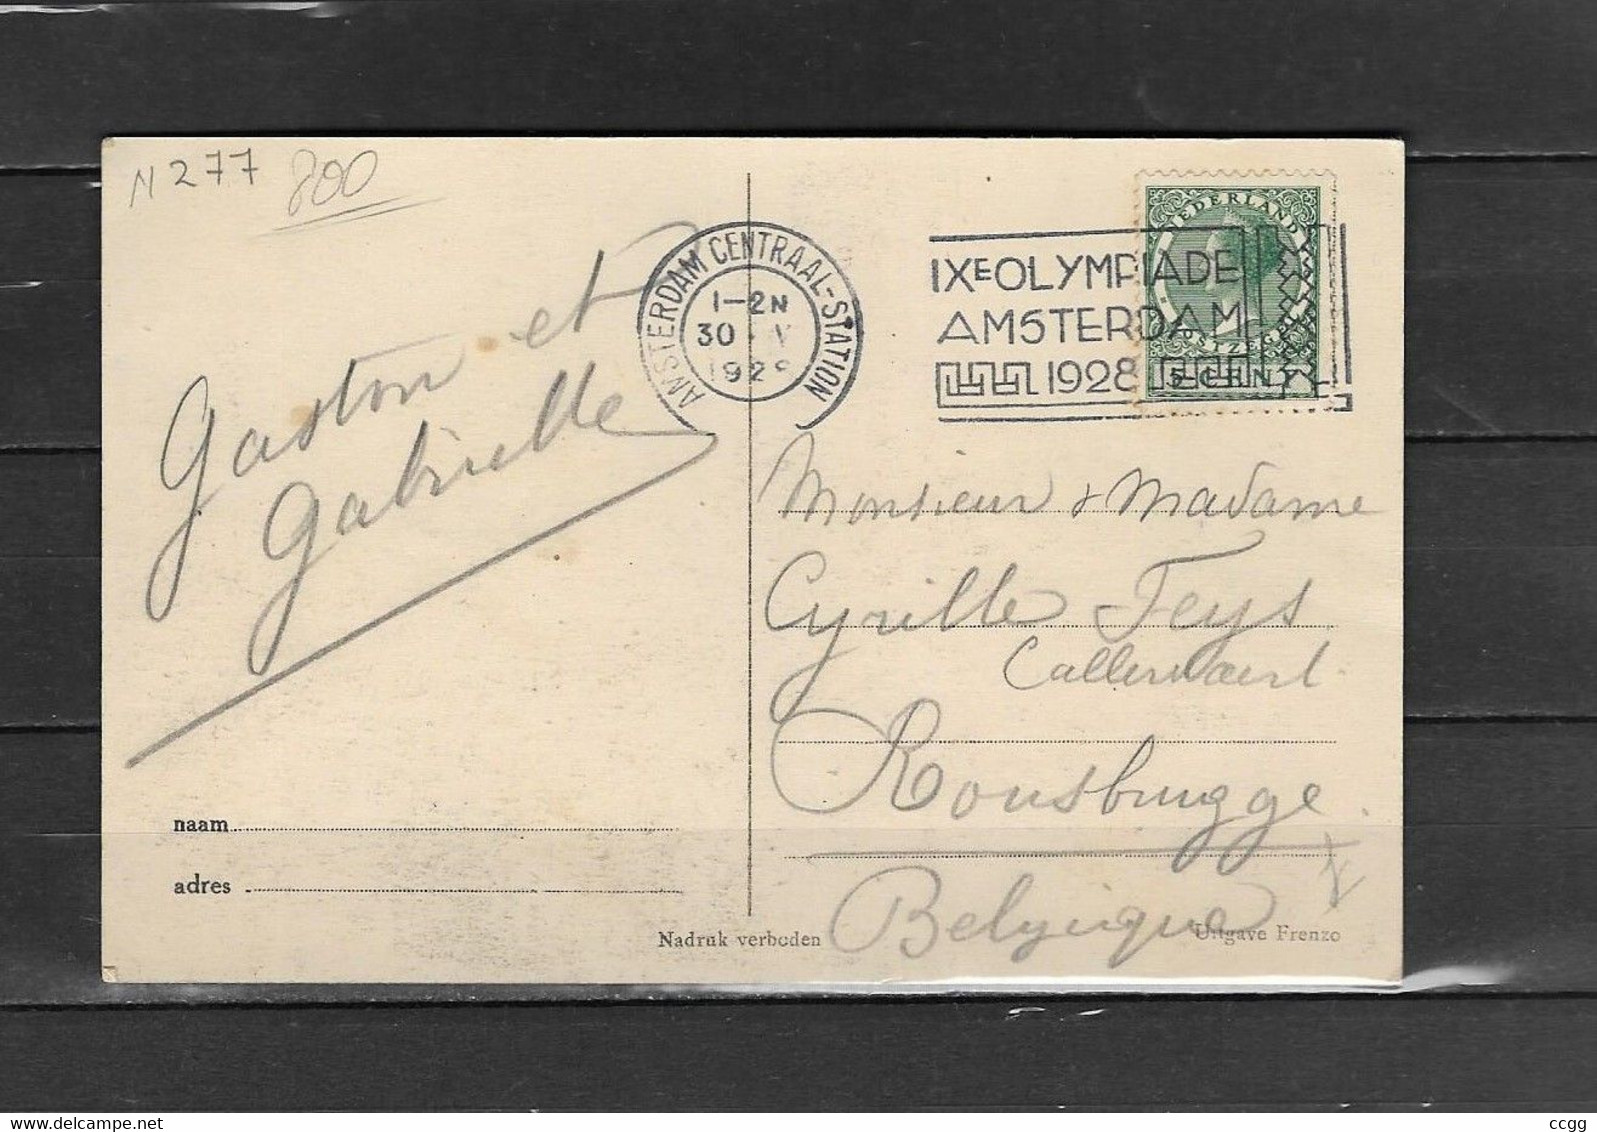 N 277 800
Gaston et
Gabrielle
naam
adres
Nadruk verboden
AMSTERDAM CENTRAAL-STATION
1-2N
30
1928
IXE OLYMPIADE
AMSTERDAM
1928
NEDERLAND
POSTZEGEL
5 CENT
Monsieur & Madame
Cyrille Feys
Callewaert
Rousbrugge
Belgique
Uitgave Frenzo
ccgg